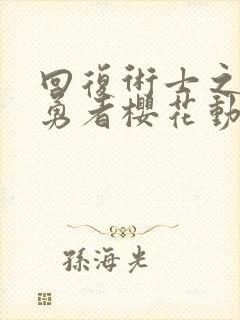 回復術士之
勇者櫻花動
孫海光